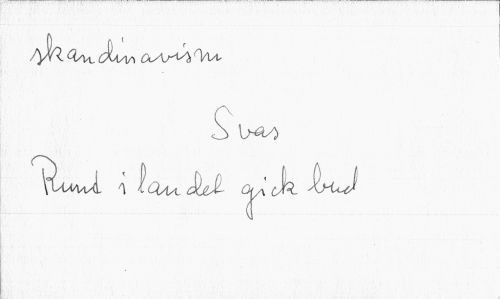 skandinavism
Svas
Runt i landet gick bud